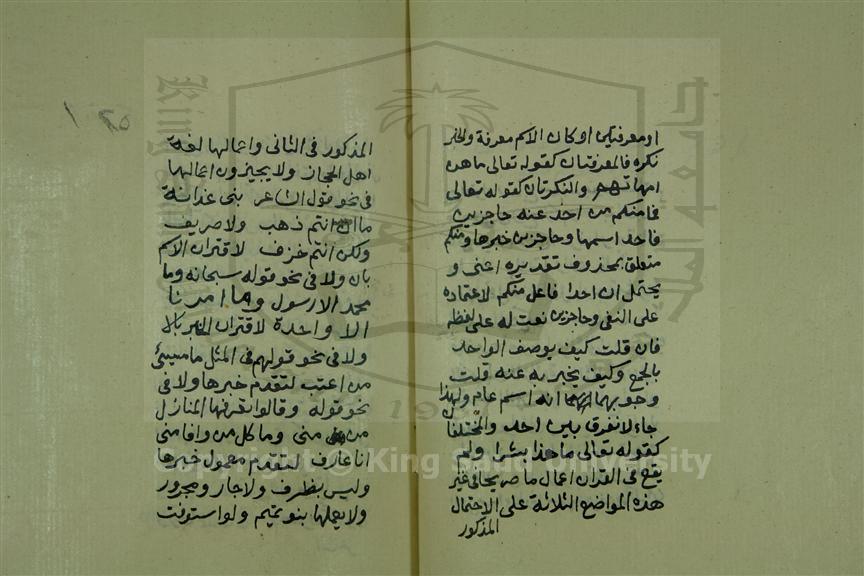 او معرفتين او كان الاسم معرفة والخبر
نكره فالمعرفتان كقوله تعالى ما هن
امهاتهم والنكرتان كقوله تعالى
فما منكم من احد عنه حاجزين
فاحد اسمها وحاجزين خبرها ومنكم
متعلق بمحذوف تقديره اعنى و
يحتمل ان احدا فاعل منكم لاعتماده
على النفى وحاجزين نعت له على لفظه
فان قلت كيف يوصف الواحد
بالجمع وكيف يخبر به عنه قلت
وجوبهما انه اسم عام ولهذا
جاء لا نفرق بين احد والمختلفان
كقوله تعالى ما هذا بشرا ولم
يقع فى القران اعمال ما صريحا فى غير
هذه المواضع الثلاثة على الاحتمال
المذكور
٢٥ ١
المذكور فى الثانى واعمالها لغة
اهل الحجاز ولا يجيزون اعمالها
فى نحو قول الشاعر بنى غدانة
ما ان انتم ذهب ولا صريف
ولكن انتم خزف لاقتران الاسم
بان ولا فى نحو قوله سبحانه وما
محمد الا رسول وما امرنا
الا واحدة لاقتران الخبر بالا
ولا فى نحو قولهم فى المثل ما مسيئ
من اعتب لتقدم خبرها ولا فى
نحو قوله وقالوا تعرفها المنازل
من منى وما كل من وافا منى
انا عارف لتقدم معمول خبرها
وليس بظرف ولا جار ومجرور
ولا يعملها بنو تميم ولو استوفت
جامعة الملك سعود
19
Copyright © King Saud University